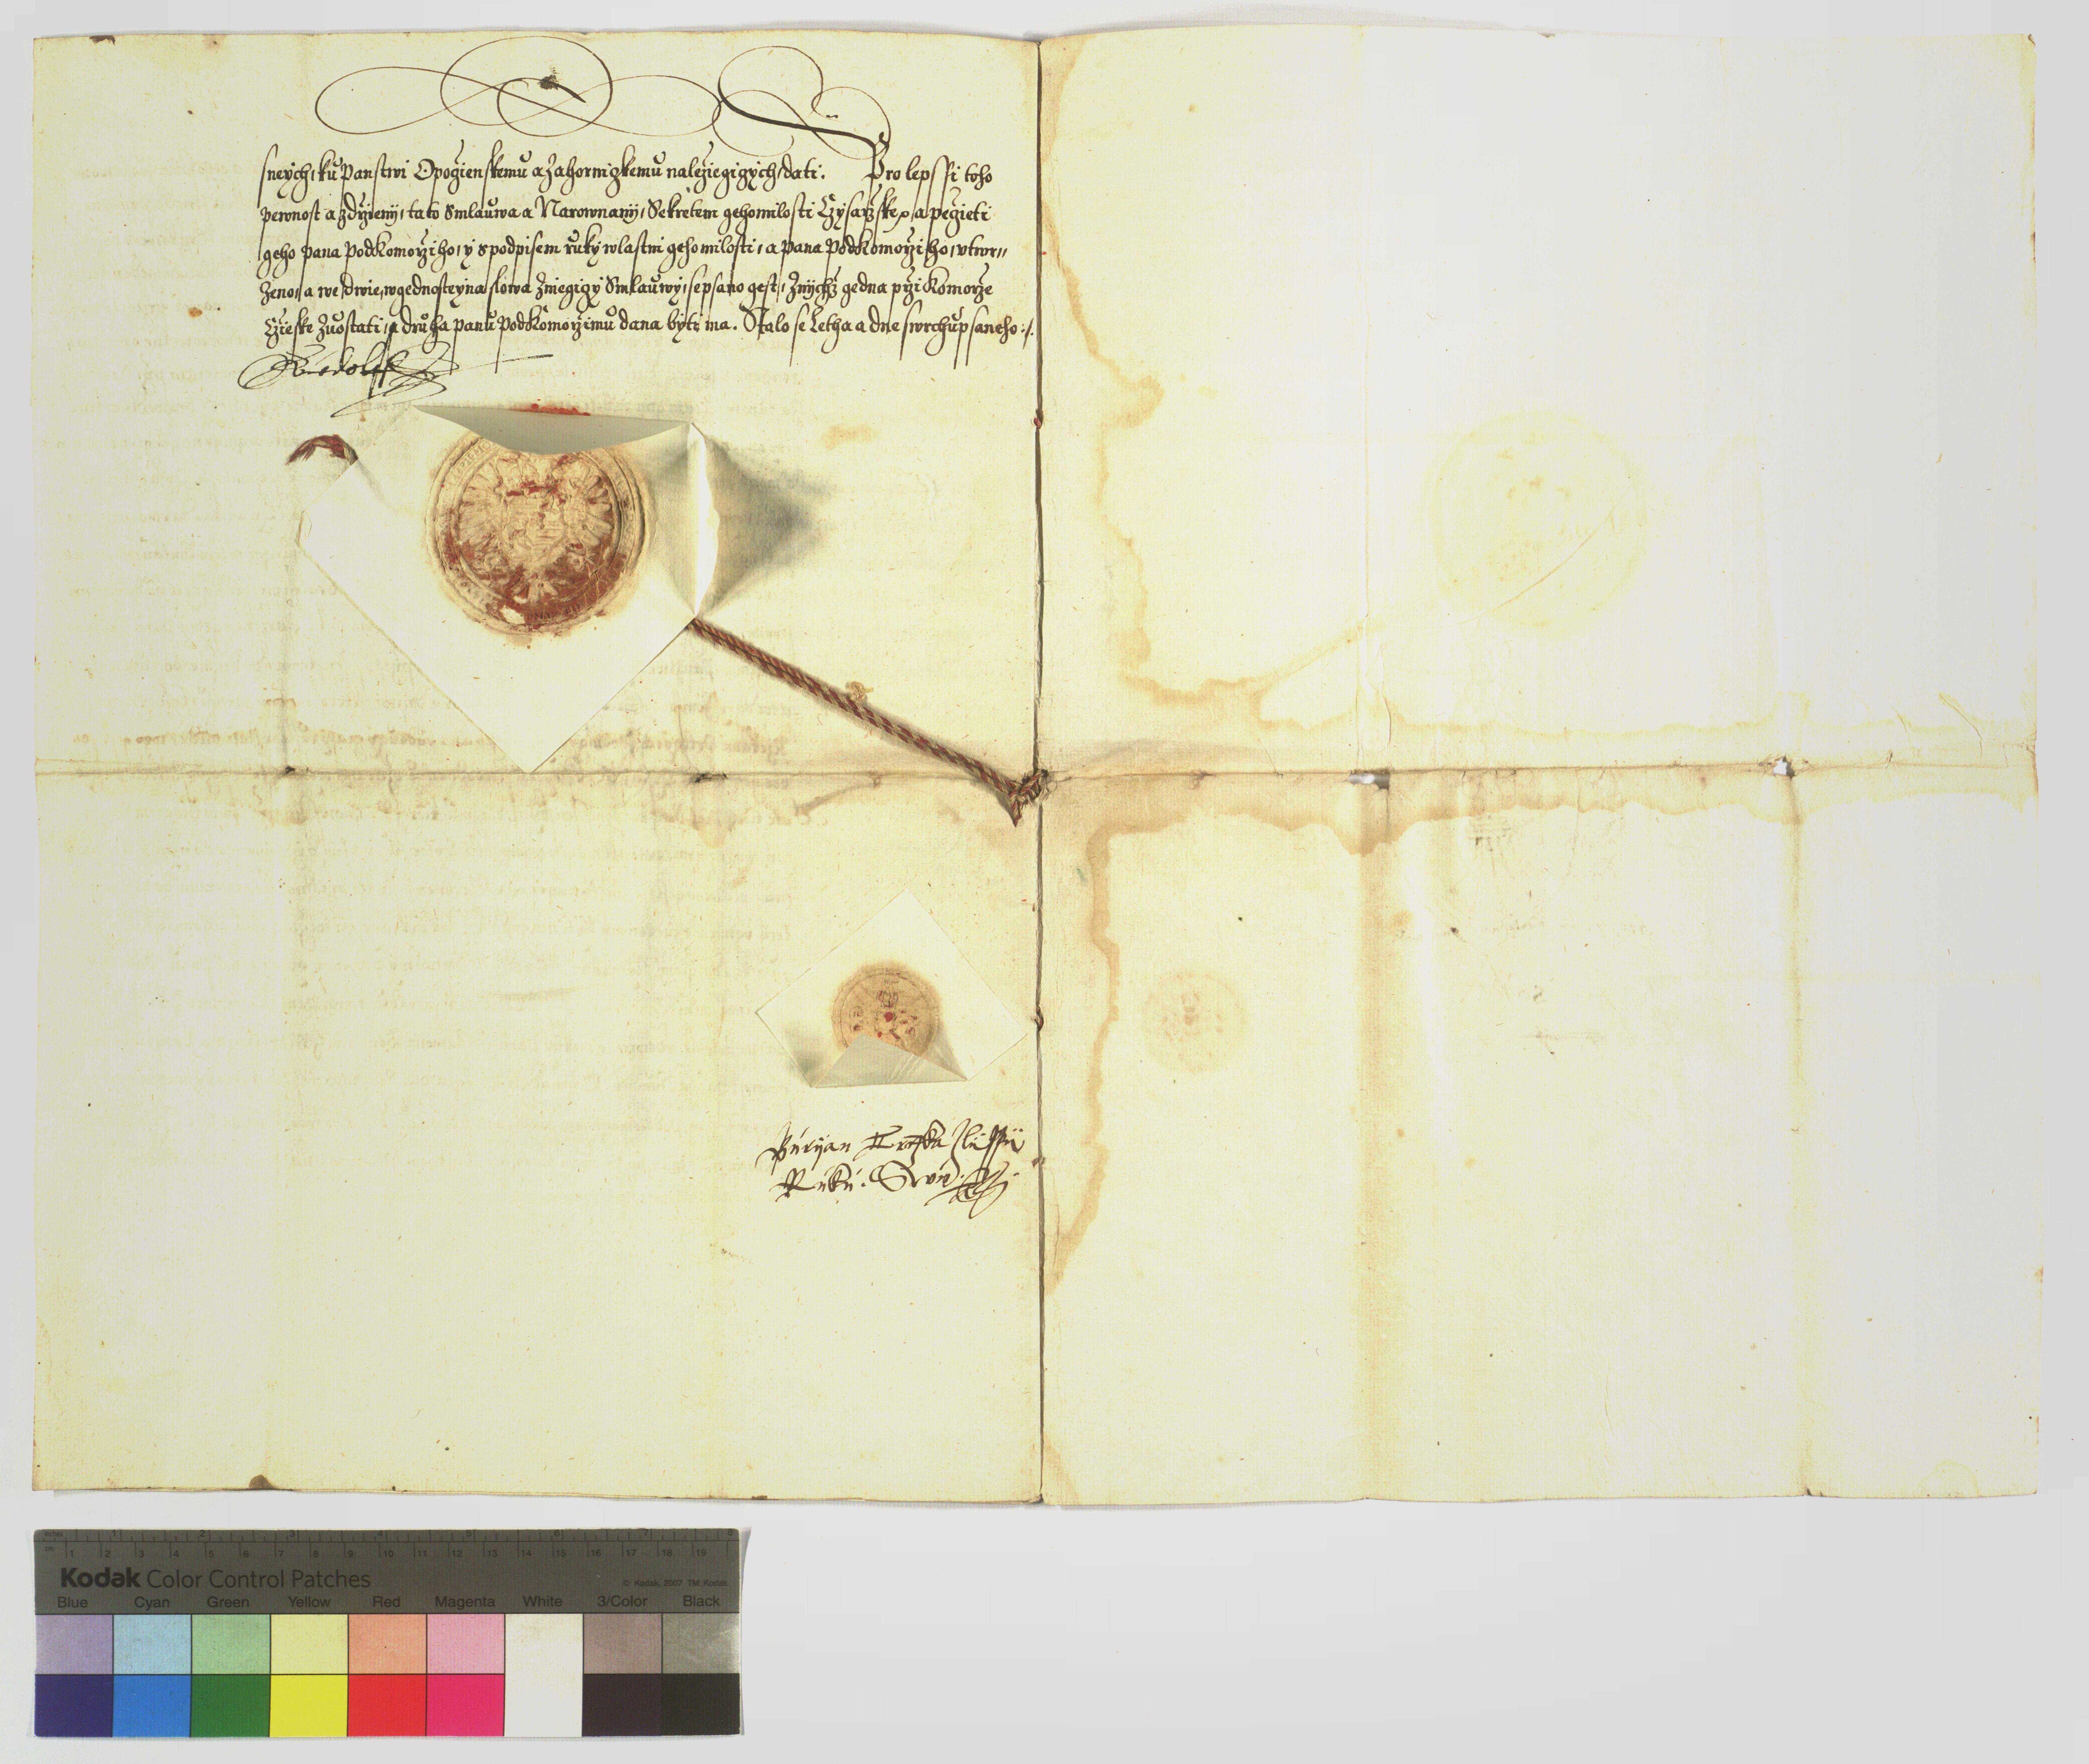 sneych, ku Panstwi Opogienskemu a Zahornizkemu naležiegigych, dati. Pro lepssi toho
pewnost a zdrženj, tato Smlauwa a Narownanj, Sekretem geho milosti Czysaržske, a pečieti
geho pana Podkomoržiho, y s podpisem ruky wlastni geho milosti, a pana Podkomoržiho, vtwr„
zeno, a we dwie, w gednosteyna slowa zniegigy Smlauwy, sepsano gest, z nychž gedna prži Komorže
Cžieske zuostati, a druha panu Podkomoržimu dana byti ma. Stalo se Letha a dne swrchupsaneho :/.
Rudolff
Buryan Trcžka
Ruku. Swú.
Kodak Color Control Patches
© Kodak, 2007 TM: Kodak
Blue Cyan Green Yellow Red Magenta White 3/Color Black